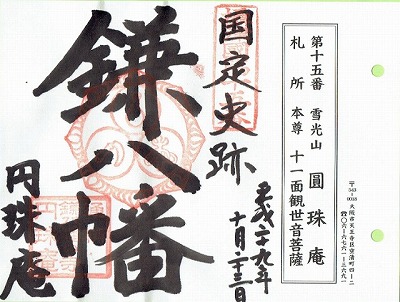 第十五番 雪光山 圓珠庵
札所 本尊 十一面観世音菩薩
〒543-0018 大阪市天王寺区空清町四-二
☎〇六-六七六一-三六九一
国定史跡
鎌八幡
平成二十九年
十月二十三日
円珠庵